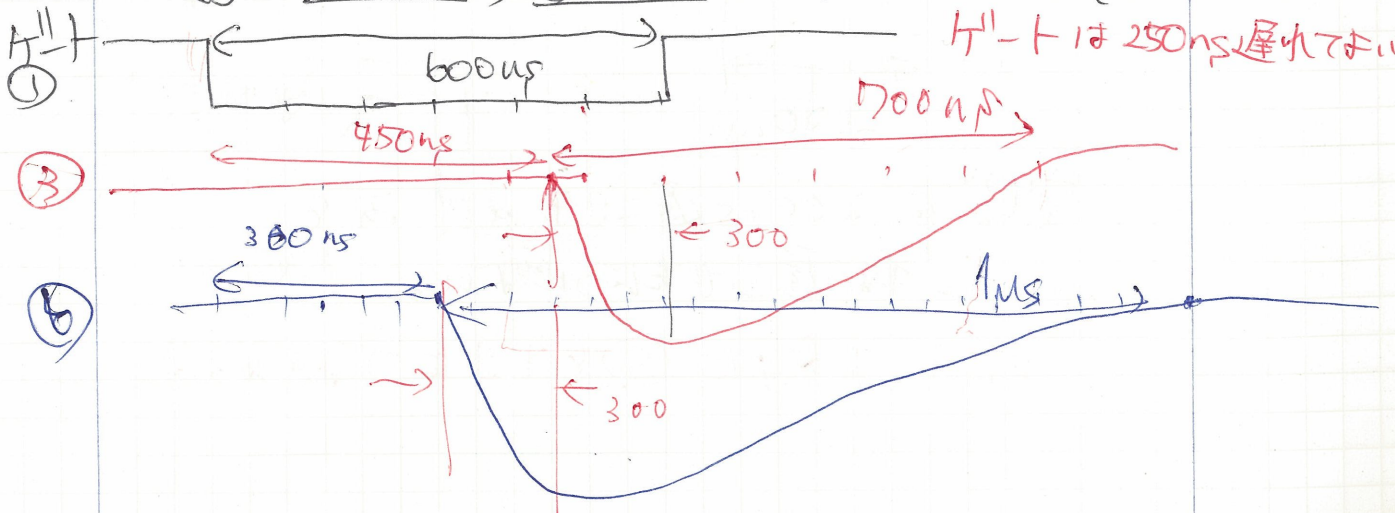 ゲート
①
600ns
ゲートは250ns遅れてよい
③
450ns
700ns
300
300ns
⑥
1μs
300